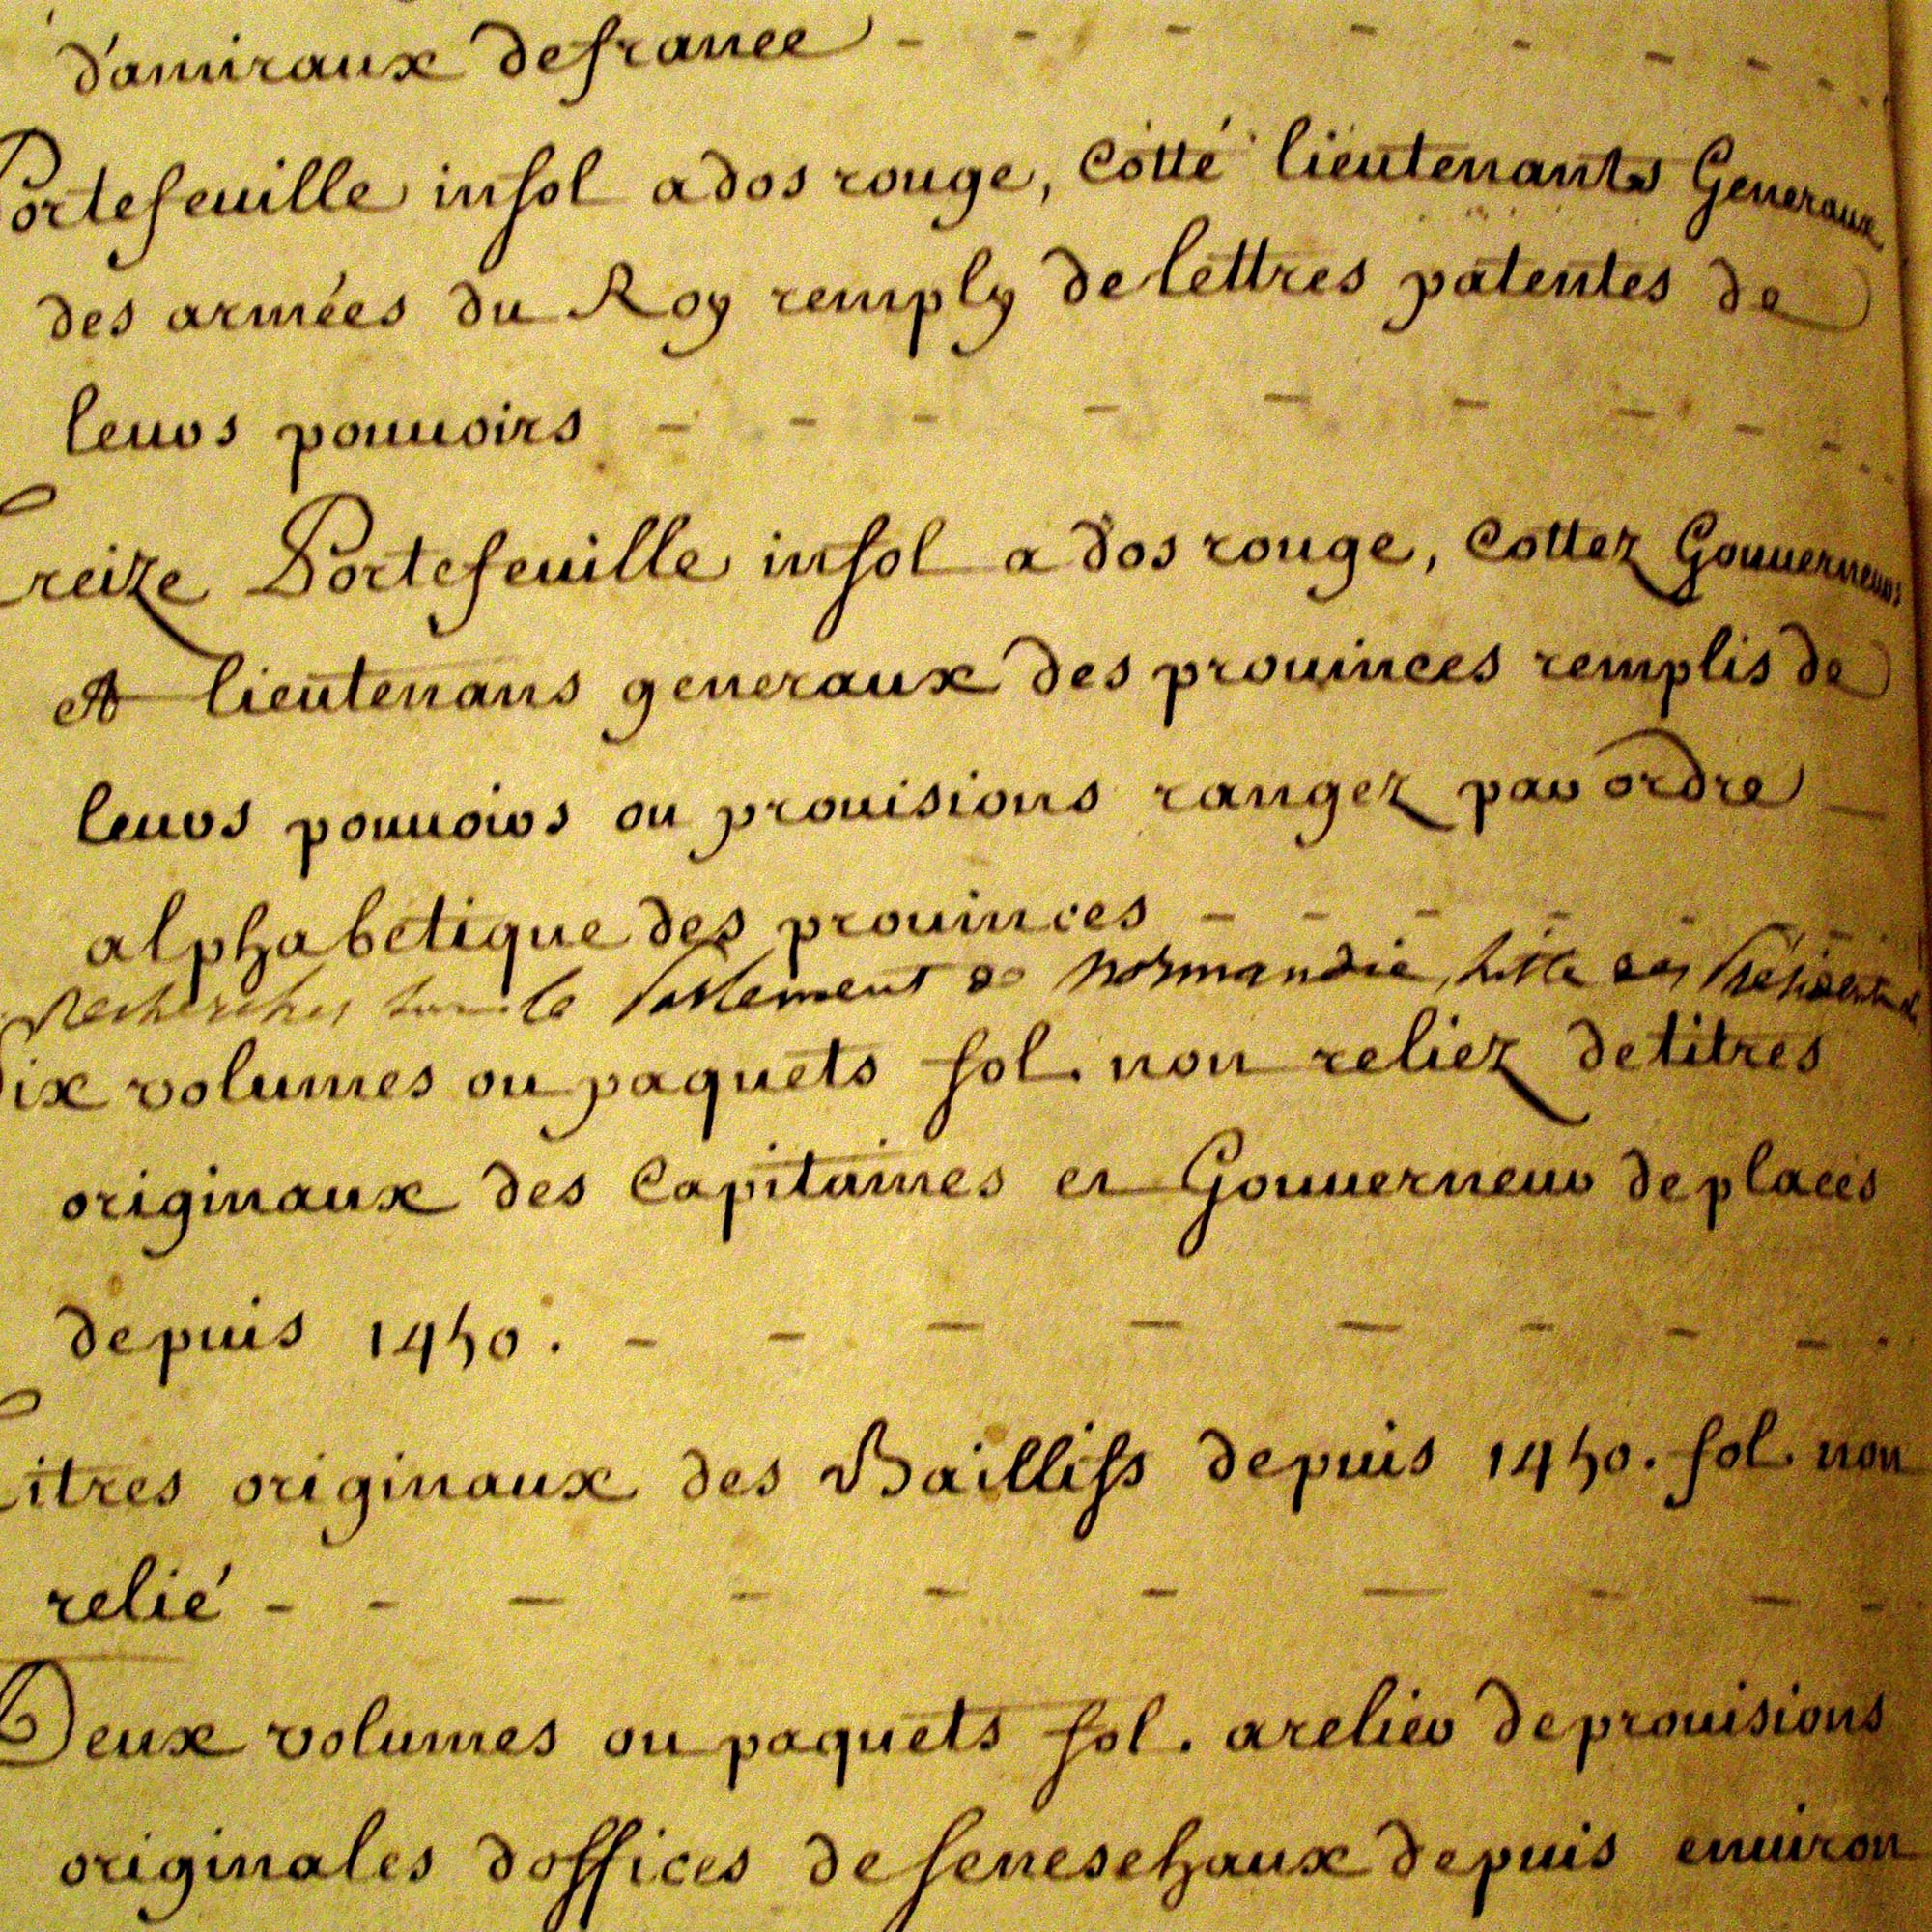 d'amiraux de france - - - - - - - -
Portefeuille in fol a dos rouge, Cotté lieutenants Generaux
des armées du Roy remply de lettres patentes de
leurs pouuoirs - - - - - - - - -
Treize Portefeuille in fol a dos rouge, Cottez Gouuerneurs
et lieutenans generaux des prouinces remplis de
leurs pouuoirs ou prouisions rangez par ordre
alphabétique des prouinces - - - - - -
Recherches sur le Parlement de Normandie, liste des Présidents
ix volumes ou paquets fol. non reliez de titres
originaux des Capitaines et Gouuerneurs de places
depuis 1450. - - - - - - - -
Titres originaux des Baillifs depuis 1450. fol. non
relié - - - - - - - - - -
Deux volumes ou paquets fol. a relier de prouisions
originales d offices de seneschaux depuis enuiron